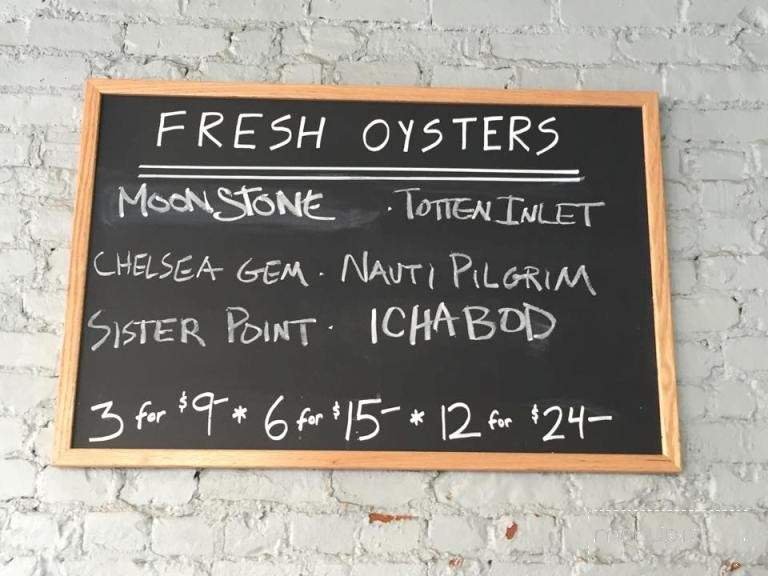 FRESH OYSTERS
MOONSTONE · TOTTEN INLET
CHELSEA GEM · NAUTI PILGRIM
SISTER POINT · ICHABOD
3 for $9- * 6 for $15- * 12 for $24-